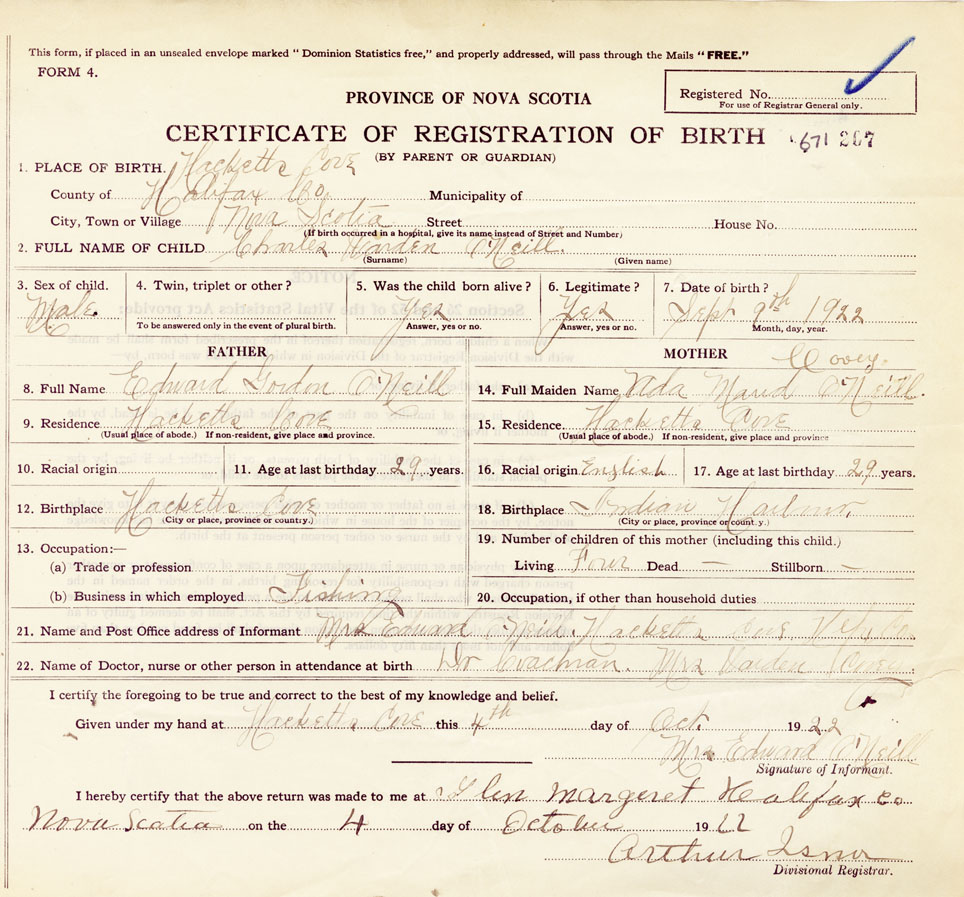 This form, if placed in an unsealed envelope marked "Dominion Statistics free," and properly addressed, will pass through the Mails "FREE."
FORM 4.
Registered No.
For use of Registrar General only.
PROVINCE OF NOVA SCOTIA
CERTIFICATE OF REGISTRATION OF BIRTH 671 267
(BY PARENT OR GUARDIAN)
1. PLACE OF BIRTH. Hacketts Cove
County of Halifax Co. Municipality of
City, Town or Village Nova Scotia Street House No.
(If birth occurred in a hospital, give its name instead of Street and Number)
2. FULL NAME OF CHILD Charles Varden O'Neill.
(Surname) (Given name)
3. Sex of child. 4. Twin, triplet or other? 5. Was the child born alive? 6. Legitimate? 7. Date of birth?
Male. Yes Yes Sept 9th 1922
To be answered only in the event of plural birth. Answer, yes or no. Answer, yes or no. Month, day, year.
FATHER MOTHER Covey.
8. Full Name Edward Gordon O'Neill 14. Full Maiden Name Ada Maud O'Neill.
9. Residence Hacketts Cove 15. Residence. Hacketts Cove
(Usual place of abode.) If non-resident, give place and province. (Usual place of abode.) If non-resident, give place and province
10. Racial origin 11. Age at last birthday 29 years. 16. Racial origin English 17. Age at last birthday 29 years.
12. Birthplace Hacketts Cove 18. Birthplace Indian Harbour
(City or place, province or country.) (City or place, province or country.)
13. Occupation:— 19. Number of children of this mother (including this child.)
(a) Trade or profession Living Four Dead — Stillborn —
(b) Business in which employed Fishing 20. Occupation, if other than household duties
21. Name and Post Office address of Informant Mrs Edward O'Neill. Hacketts Cove
22. Name of Doctor, nurse or other person in attendance at birth Dr Mrs Varden Covey
I certify the foregoing to be true and correct to the best of my knowledge and belief.
Given under my hand at Hacketts Cove this 4th day of Oct. 1922
Mrs Edward O'Neill
Signature of Informant.
I hereby certify that the above return was made to me at Glen Margeret Halifax Co
Nova Scotia on the 4 day of October 1922
Arthur Isnor
Divisional Registrar.